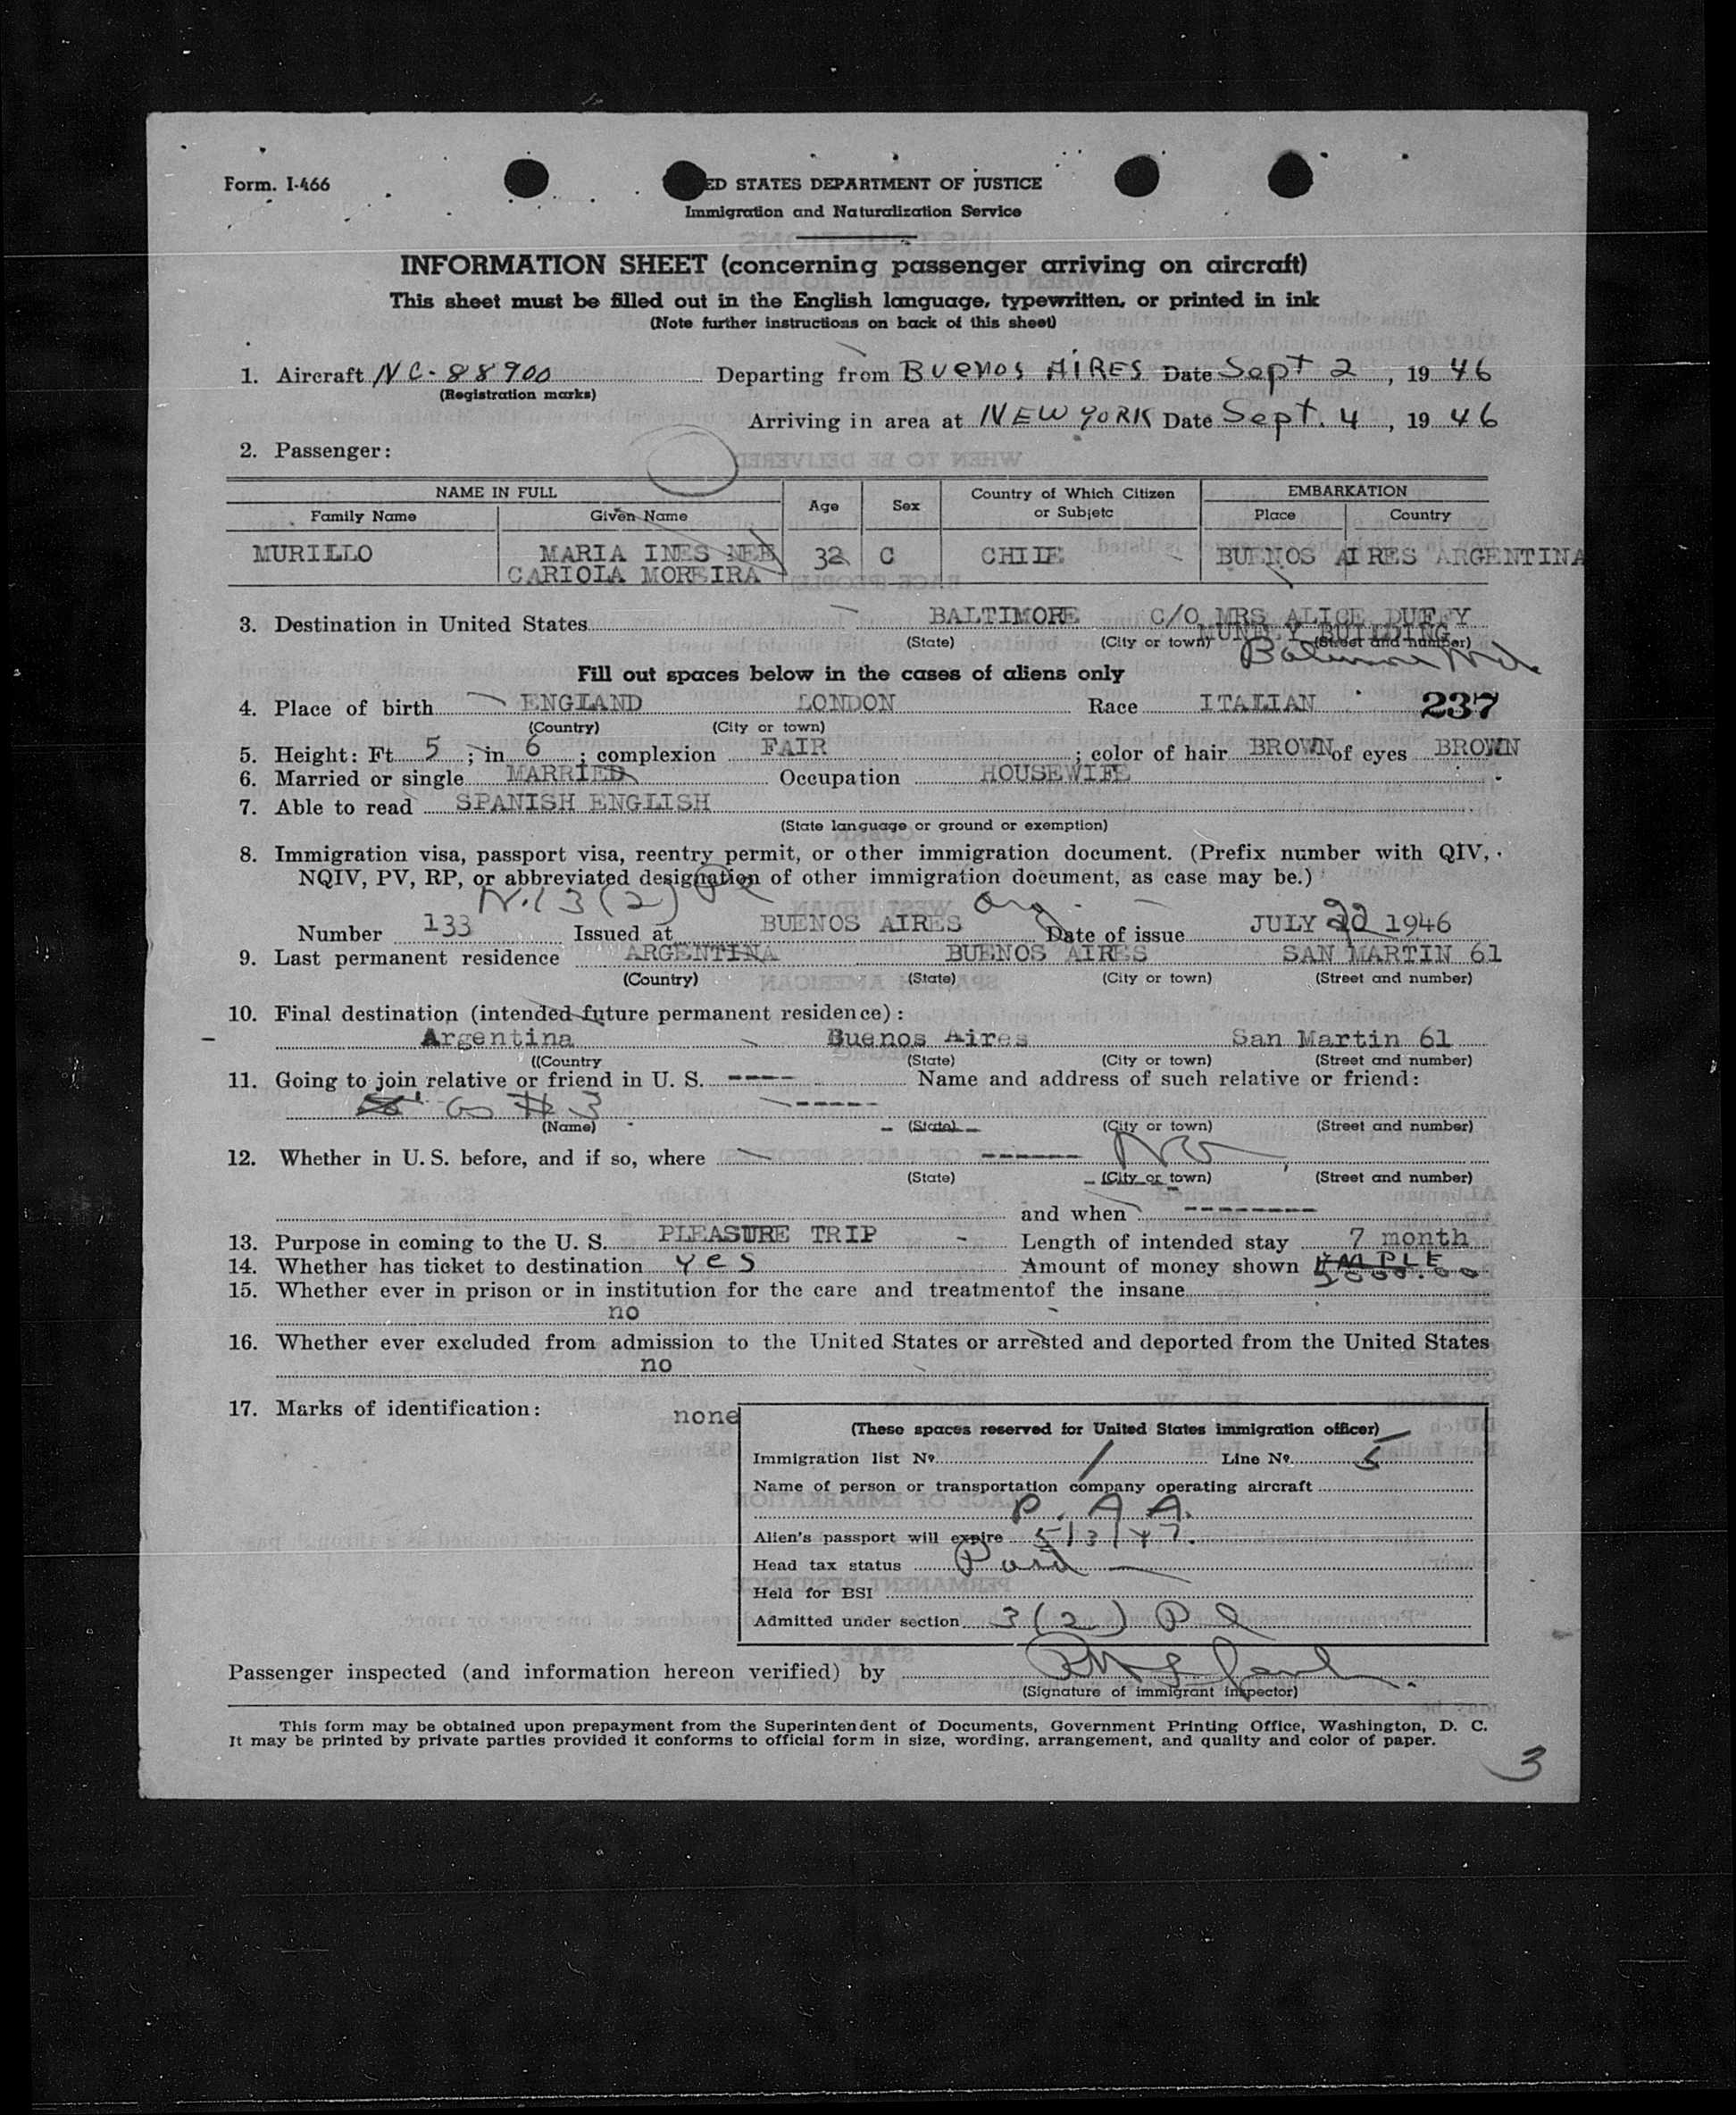 Form. I-466
ED STATES DEPARTMENT OF JUSTICE
Immigration and Naturalization Service
INFORMATION SHEET (concerning passenger arriving on aircraft)
This sheet must be filled out in the English language, typewritten, or printed in ink
(Note further instructions on back of this sheet)
1. Aircraft NC-88900 Departing from BUENOS AIRES Date Sept 2, 1946
(Registration marks)
Arriving in area at NEW YORK Date Sept. 4, 1946
2. Passenger:
NAME IN FULL Age Sex Country of Which Citizen or Subjetc EMBARKATION
Family Name Given Name Place Country
MURILLO MARIA INES NEE 32 C CHILE BUENOS AIRES ARGENTINA
CARIOLA MOREIRA
3. Destination in United States BALTIMORE C/O MRS ALICE DUFFY
(State) (City or town) (Street and number)
MUNSEY BUILDING
Baltimore Md.
Fill out spaces below in the cases of aliens only
4. Place of birth ENGLAND LONDON Race ITALIAN 237
(Country) (City or town)
5. Height: Ft 5 ; in 6 ; complexion FAIR ; color of hair BROWN of eyes BROWN
6. Married or single MARRIED Occupation HOUSEWIFE
7. Able to read SPANISH ENGLISH
(State language or ground or exemption)
8. Immigration visa, passport visa, reentry permit, or other immigration document. (Prefix number with QIV,
NQIV, PV, RP, or abbreviated designation of other immigration document, as case may be.)
3(2) Arg.
Number 133 Issued at BUENOS AIRES Date of issue JULY 1946
9. Last permanent residence ARGENTINA BUENOS AIRES SAN MARTIN 61
(Country) (State) (City or town) (Street and number)
10. Final destination (intended future permanent residence):
Argentina Buenos Aires San Martin 61
((Country (State) (City or town) (Street and number)
11. Going to join relative or friend in U. S. ---- Name and address of such relative or friend:
as # 3 -----
(Name) (State) (City or town) (Street and number)
12. Whether in U. S. before, and if so, where ------ No
(State) (City or town) (Street and number)
and when --------
13. Purpose in coming to the U. S. PLEASURE TRIP Length of intended stay 7 month
14. Whether has ticket to destination yes Amount of money shown 5000.00
15. Whether ever in prison or in institution for the care and treatmentof the insane
no
16. Whether ever excluded from admission to the United States or arrested and deported from the United States
no
17. Marks of identification: none
(These spaces reserved for United States immigration officer)
Immigration list No. 1 Line No. 5
Name of person or transportation company operating aircraft
P. A A.
Alien's passport will expire 5/3/47.
Head tax status Paid
Held for BSI
Admitted under section 3(2) Pl
Passenger inspected (and information hereon verified) by
(Signature of immigrant inspector)
This form may be obtained upon prepayment from the Superintendent of Documents, Government Printing Office, Washington, D. C.
It may be printed by private parties provided it conforms to official form in size, wording, arrangement, and quality and color of paper.
3